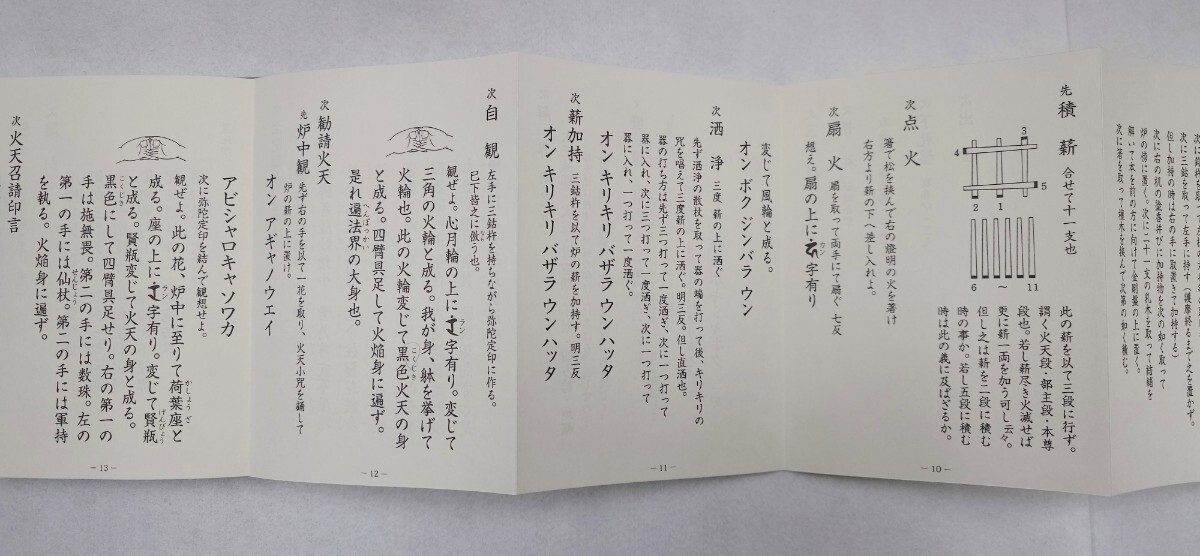 次に右の机の塗香并びに加持物を次の如く取って
炉の傍に置く。次に二十一支の乳木を取って結緒を
解いて本を行者の方に向けて金剛盤の上に置く。
次に箸を取って積木を挟んで次第の如く積む。
先 積薪 合せて十一支也
3
4
5
2
1
6 〜 11
此の薪を以て三段に行ず。
謂く火天段・部主段・本尊
段也。若し薪尽き火滅せば
更に薪一両を加う可し云々。
但し之は薪を二段に積む
時の事か。若し五段に積む
時は此の義に及ばざるか。
次 点火
箸で松を挟んで右の燈明の火を著け
右方より薪の下へ差し入れよ。
次 扇火 扇を取って両手にて扇ぐ 七反
想え。扇の上に字有り
カン
－10－
変じて風輪と成る。
オン ボク ジンバラ ウン
次 洒浄 三度 薪の上に洒ぐ
先ず洒浄の散杖を取って器の端を打って後、キリキリの
咒を唱えて三度薪の上に洒ぐ。明三反。但し直洒也。
器の打ち方は先ず三つ打って一度洒ぎ、次に一つ打って
器に入れ、次に三つ打って一度洒ぎ、次に一つ打って
器に入れ、一つ打って一度洒ぐ。
オン キリキリ バザラ ウンハッタ
次 薪加持 三鈷杵を以て炉の薪を加持す。明三反
オン キリキリ バザラ ウンハッタ
－11－
次 自観 左手に三鈷杵を持ちながら弥陀定印に作る。
已下皆之に倣う也。
観ぜよ。心月輪の上に字有り。変じて
ラン
三角の火輪と成る。我が身、躰を挙げて
火輪也。此の火輪変じて黒色火天の身
こくじき
と成る。四臂具足して火焔身に遍ず。
是れ遍法界の大身也。
へんぽっかい
次 勧請火天
先 炉中観 先ず右の手を以て一花を取り、火天小咒を誦して
炉の薪の上に置け。
オン アギャノウエイ
－12－
アビシャロキャソワカ
次に弥陀定印を結んで観想せよ。
観ぜよ。此の花、炉中に至りて荷葉座と
かしょうざ
成る。座の上に字有り。変じて賢瓶
ラン
げんびょう
と成る。賢瓶変じて火天の身と成る。
黒色にして四臂具足せり。右の第一の
こくじき
手は施無畏。第二の手には数珠。左の
第一の手には仙杖。第二の手には軍持
せんじょう
を執る。火焔身に遍ず。
次 火天召請印言
－13－